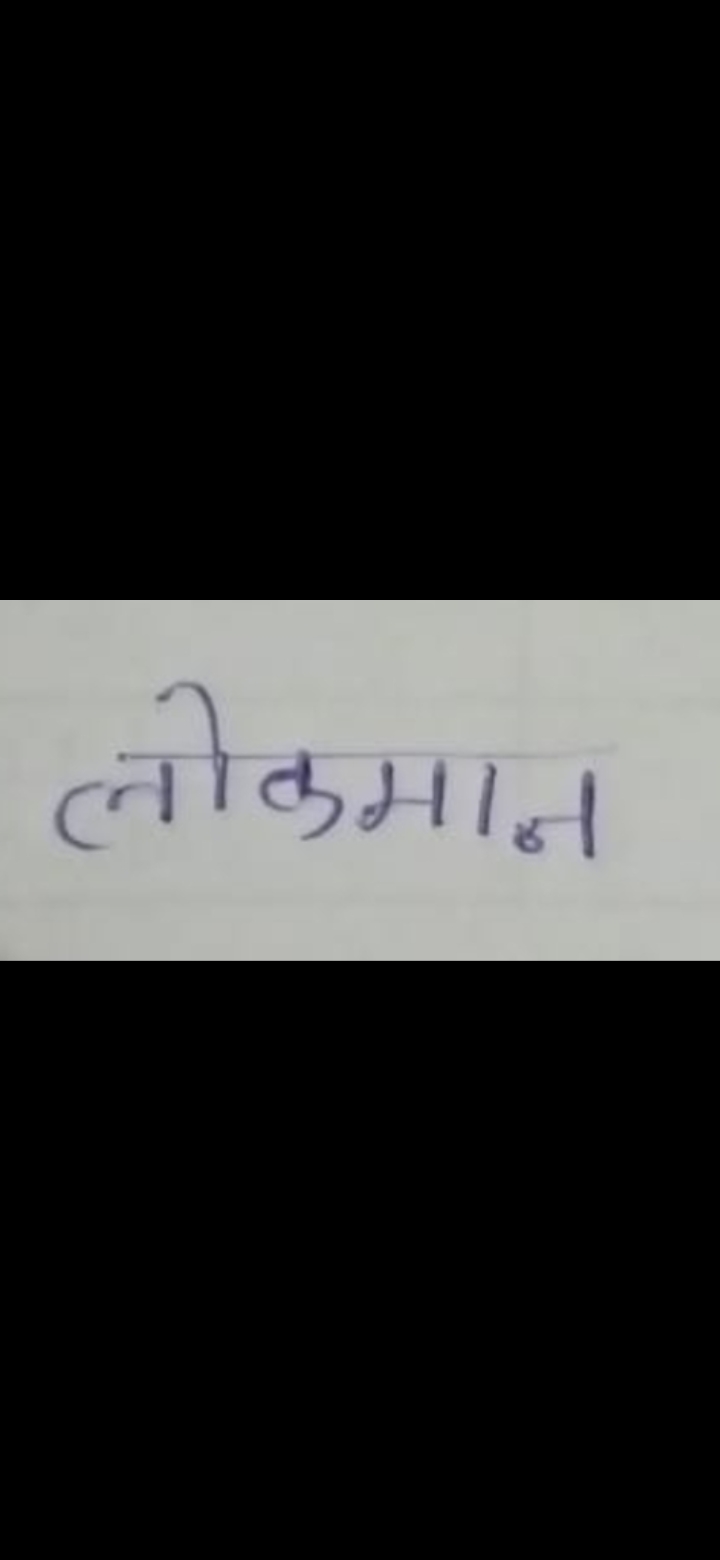 लोकमान